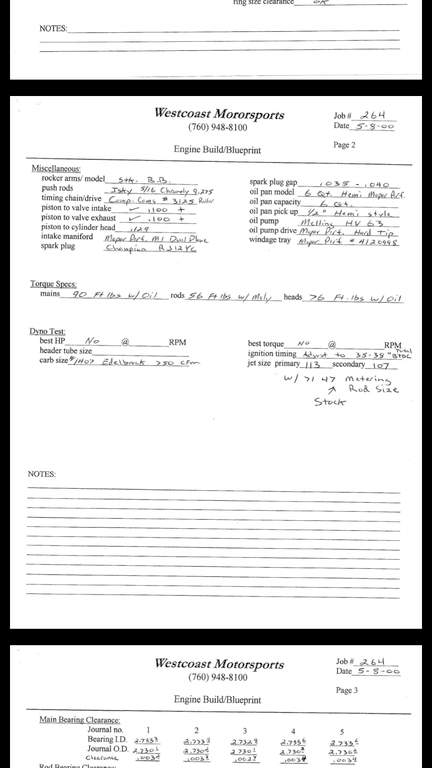 ring size clearance OK
NOTES:
Westcoast Motorsports
(760) 948-8100
Job # 264
Date 5-8-00
Engine Build/Blueprint
Page 2
Miscellaneous:
rocker arms/ model Stk. B.B.
push rods Isky 5/16 Chromoly 9.275
timing chain/drive Comp. Cams # 3125 Roller
piston to valve intake ✓ .100 +
piston to valve exhaust ✓ .100 +
piston to cylinder head .129
intake maniford Mopar Perf. M1 Dual Plane
spark plug Champion RJ12YC
spark plug gap .035 - .040
oil pan model 6 Qt. Hemi Mopar Perf.
oil pan capacity 6 Qt.
oil pan pick up 1/2" Hemi style
oil pump Melling HV 63
oil pump drive Mopar Perf. Hard Tip
windage tray Mopar Perf. # 4120998
Torque Specs:
mains 90 Ft lbs w/ Oil rods 56 Ft lbs w/ Moly heads 76 Ft. lbs w/ Oil
Dyno Test:
best HP No @ RPM
header tube size
carb size #1407 Edelbrock 750 CFM
best torque No @ RPM
ignition timing Adjust to 35-38° BTDC Total
jet size primary 113 secondary 107
w/ 7147 Metering
Rod Size
Stock
NOTES:
Westcoast Motorsports
(760) 948-8100
Job # 264
Date 5-8-00
Engine Build/Blueprint
Page 3
Main Bearing Clearance:
Journal no. 1 2 3 4 5
Bearing I.D.
Journal O.D.
Clearance